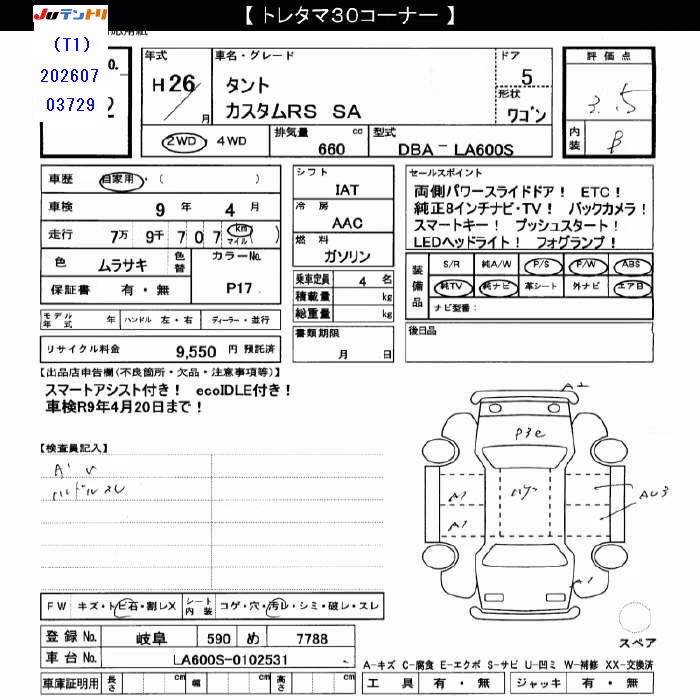 【 トレタマ30コーナー 】
JUテントリ
(T1)
202607
03729
年式
H 26
月
車名・グレード
タント
カスタムRS SA
ドア
5
形状
ワゴン
評価点
3.5
内装
B
2WD・4WD
排気量
660 cc
型式
DBA- LA600S
車歴 自家用・( )
車検 9 年 4 月
走行 7万 9千 7 0 7 km マイル ( )
色 ムラサキ 色替 カラーNo. P17
保証書 有・無
モデル年式 年 ハンドル 左・右 ディーラー・並行
リサイクル料金 9,550 円 預託済
シフト
IAT
冷房
AAC
燃料
ガソリン
乗車定員 4 名
積載量 kg
総重量 kg
書類期限
月 日
セールスポイント
両側パワースライドドア! ETC!
純正8インチナビ・TV! バックカメラ!
スマートキー! プッシュスタート!
LEDヘッドライト! フォグランプ!
装備品
S/R 純A/W P/S P/W ABS
純TV 純ナビ 革シート 外ナビ エアB
ナビ型番:
後日品
【出品店申告欄(不良箇所・欠品・注意事項等)】
スマートアシスト付き! ecoIDLE付き!
車検R9年4月20日まで!
【検査員記入】
ハンドルスレ
A2
P3e
A1
A1
AU3
A1
スペア
FW キズ・トビ石・割レX シート内装 コゲ・穴・汚レ・シミ・破レ・スレ
登録No. 岐阜 590 め 7788
車台No. LA600S-0102531
車庫証明用 長さ cm 幅 cm 高さ cm
A-キズ C-腐食 E-エクボ S-サビ U-凹ミ W-補修 XX-交換済
工具 有・無 ジャッキ 有・無